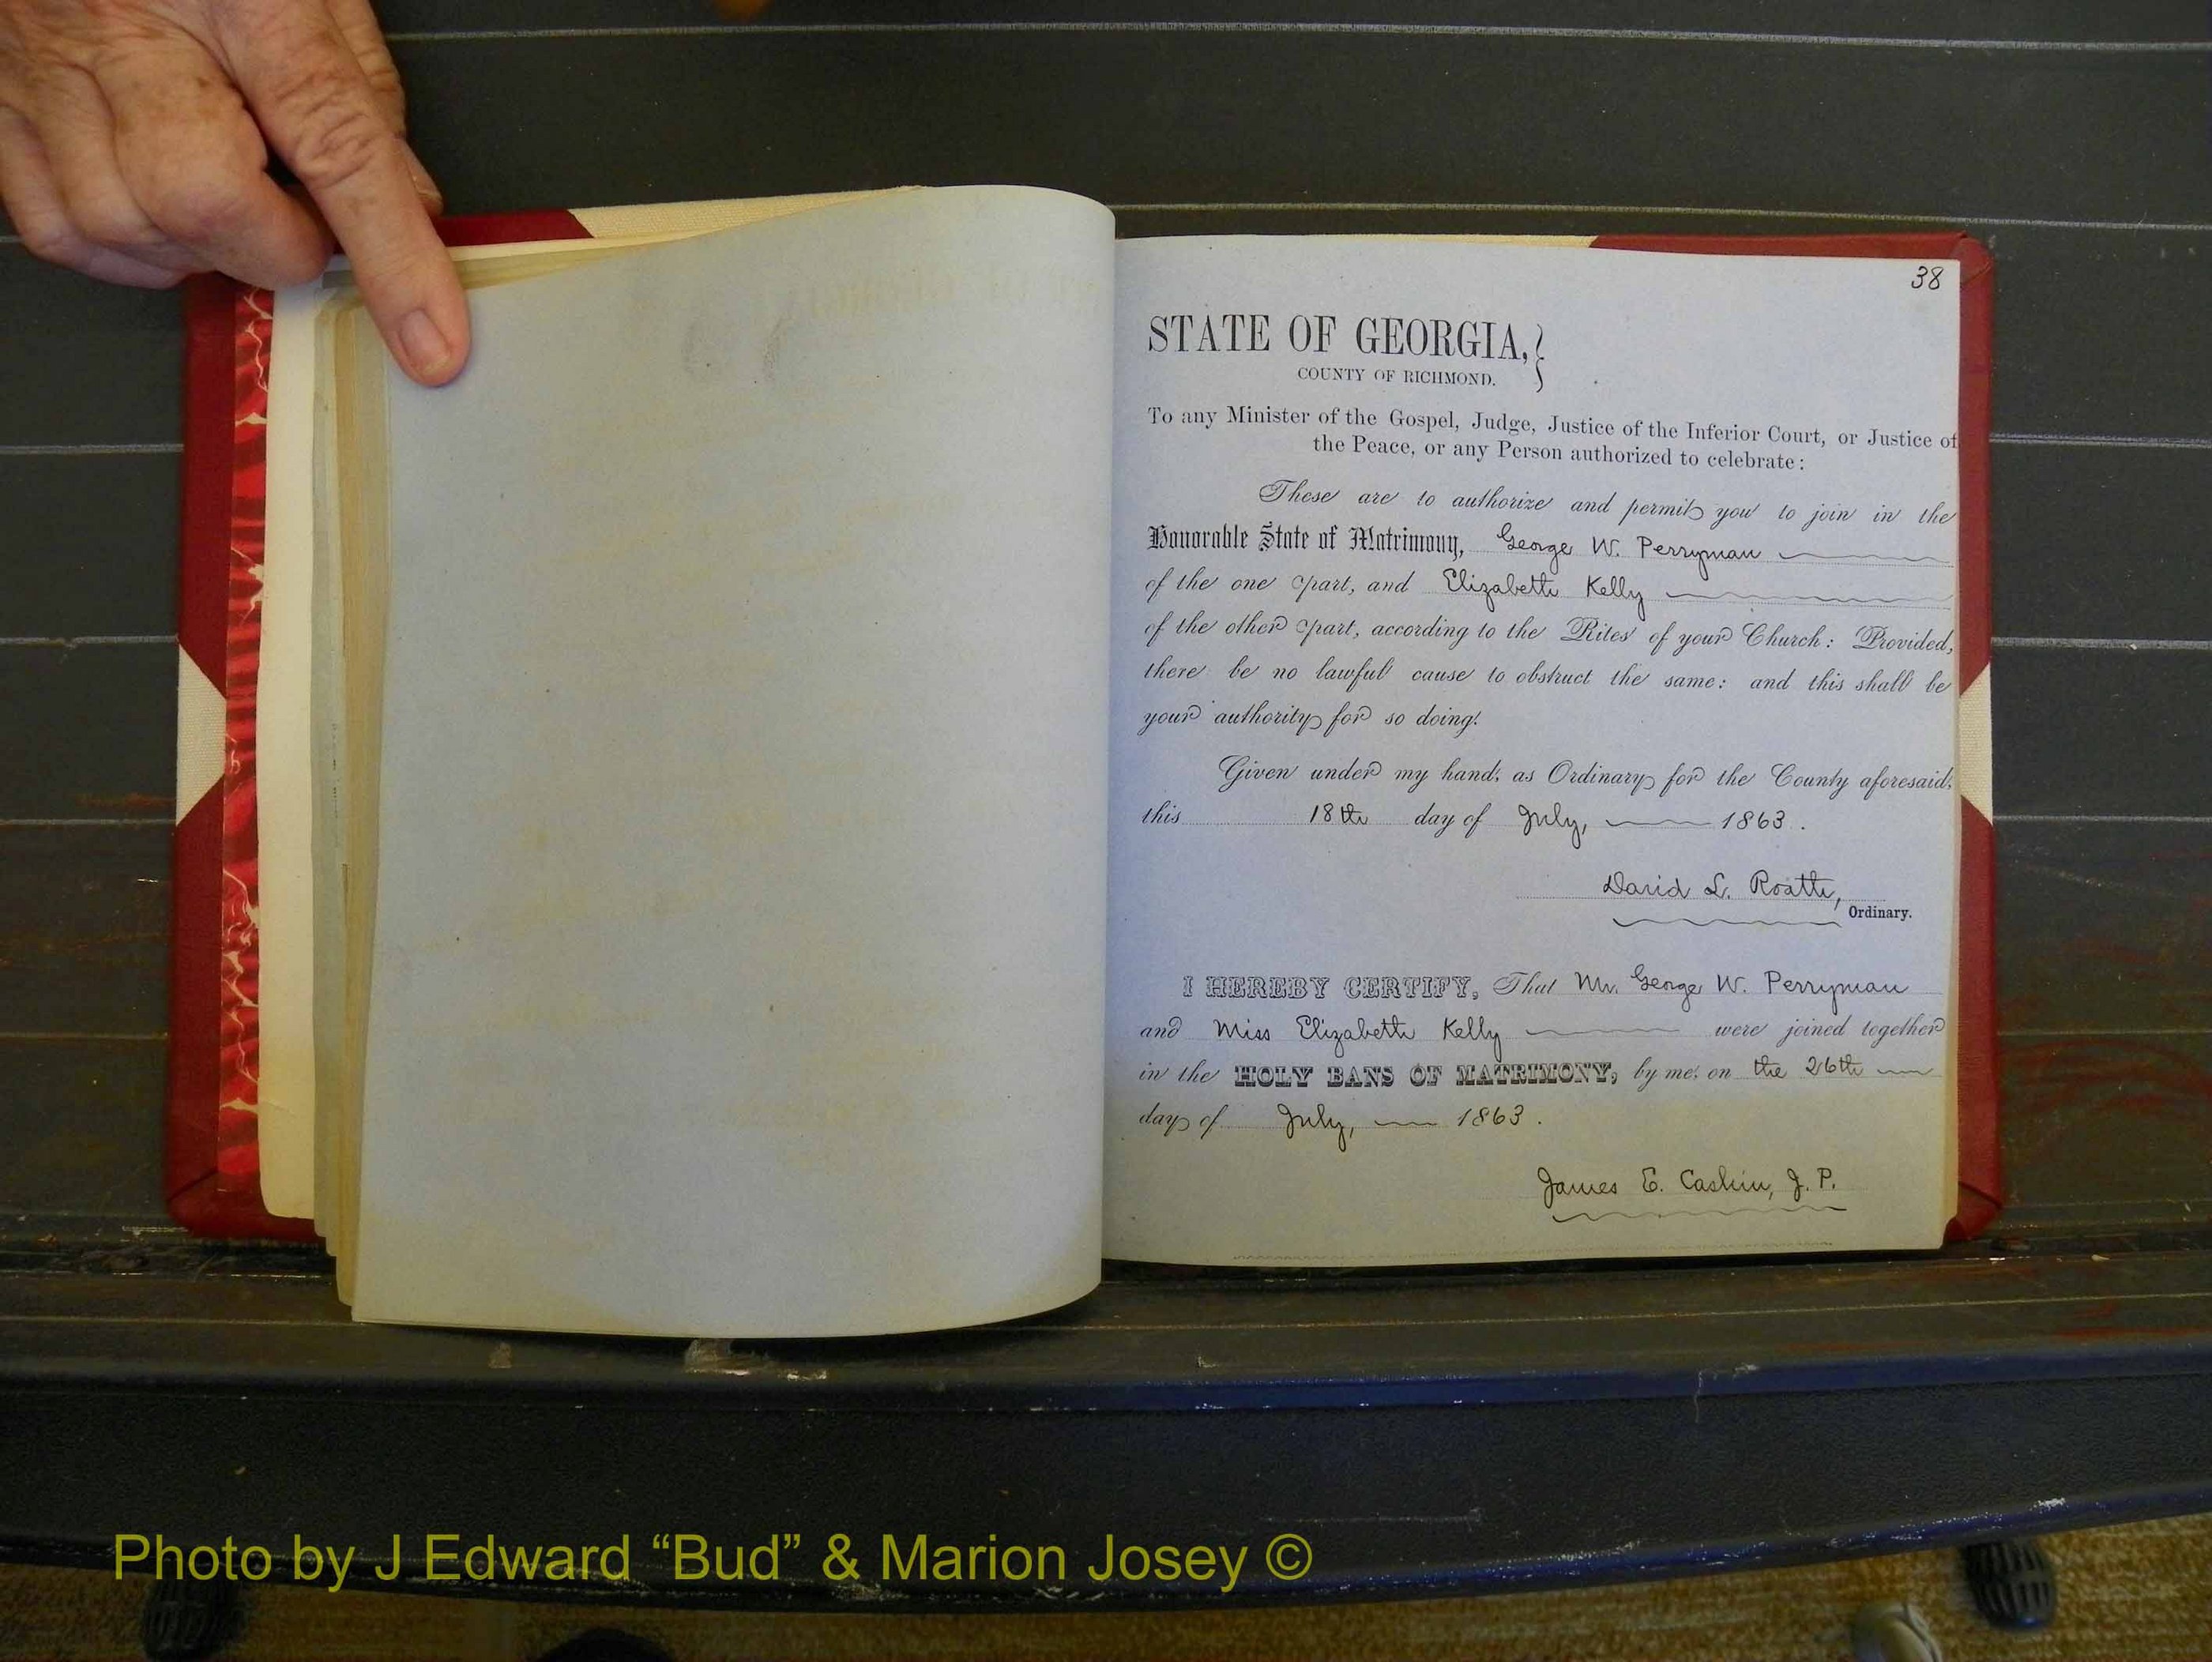 38
STATE OF GEORGIA,}
COUNTY OF RICHMOND.
To any Minister of the Gospel, Judge, Justice of the Inferior Court, or Justice of
the Peace, or any Person authorized to celebrate:
These are to authorize and permit you to join in the
Honorable State of Matrimony, George W. Perryman
of the one part, and Elizabeth Kelly
of the other part, according to the Rites of your Church: Provided,
there be no lawful cause to obstruct the same: and this shall be
your authority for so doing.
Given under my hand, as Ordinary for the County aforesaid,
this 18th day of July, 1863.
David L. Roath,
Ordinary.
I HEREBY CERTIFY, That Mr. George W. Perryman
and Miss Elizabeth Kelly were joined together
in the HOLY BANS OF MATRIMONY, by me, on the 26th
day of July, 1863.
James E. Cashin, J. P.
Photo by J Edward “Bud” & Marion Josey ©